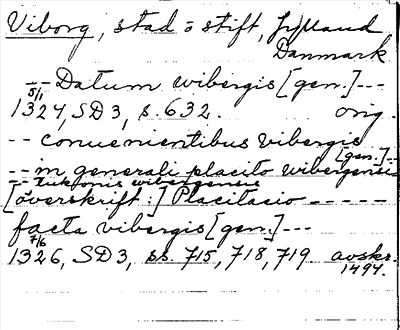 Viborg, stad o stift, Jylland
Danmark
--- Datum wibergis [gen.] ---
5/1
1324, SD3, s. 632. orig.
-- conuenientibus vibergis
[gen.] --
-- in generali placito wibergensi
-- wibergensis
[överskrift:] Placitacio -----
facta vibergis [gen.] ---
7/6
1326, SD3, ss. 715, 718, 719 avskr.
1494.